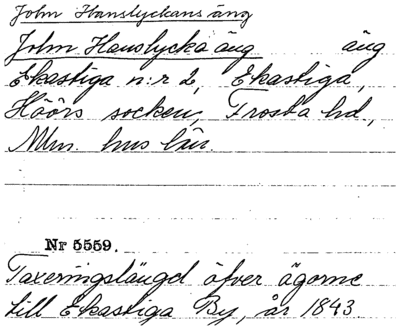 John Hanslyckans äng
John Hanslycka äng äng
Ekastiga n:r 2, Ekastiga,
Höörs socken, Frosta hd,
Mlm. hus län.
Nr 5559.
Taxeringslängd öfver ägorne
till Ekastiga By, år 1843